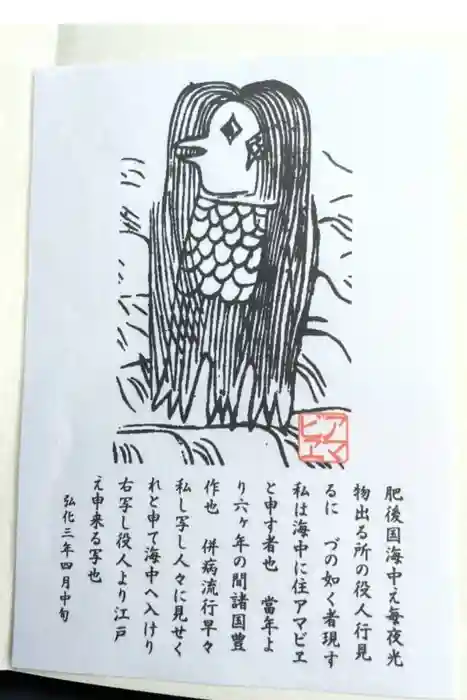 アマビエ
肥後国海中え毎夜光
物出る所の役人行見
るに　づの如く者現す
私は海中に住アマビヱ
と申す者也　當年よ
り六ヶ年の間諸国豊
作也　併病流行早々
私し写し人々に見せく
れと申て海中へ入けり
右写し役人より江戸
え申来る写也
弘化三年四月中旬